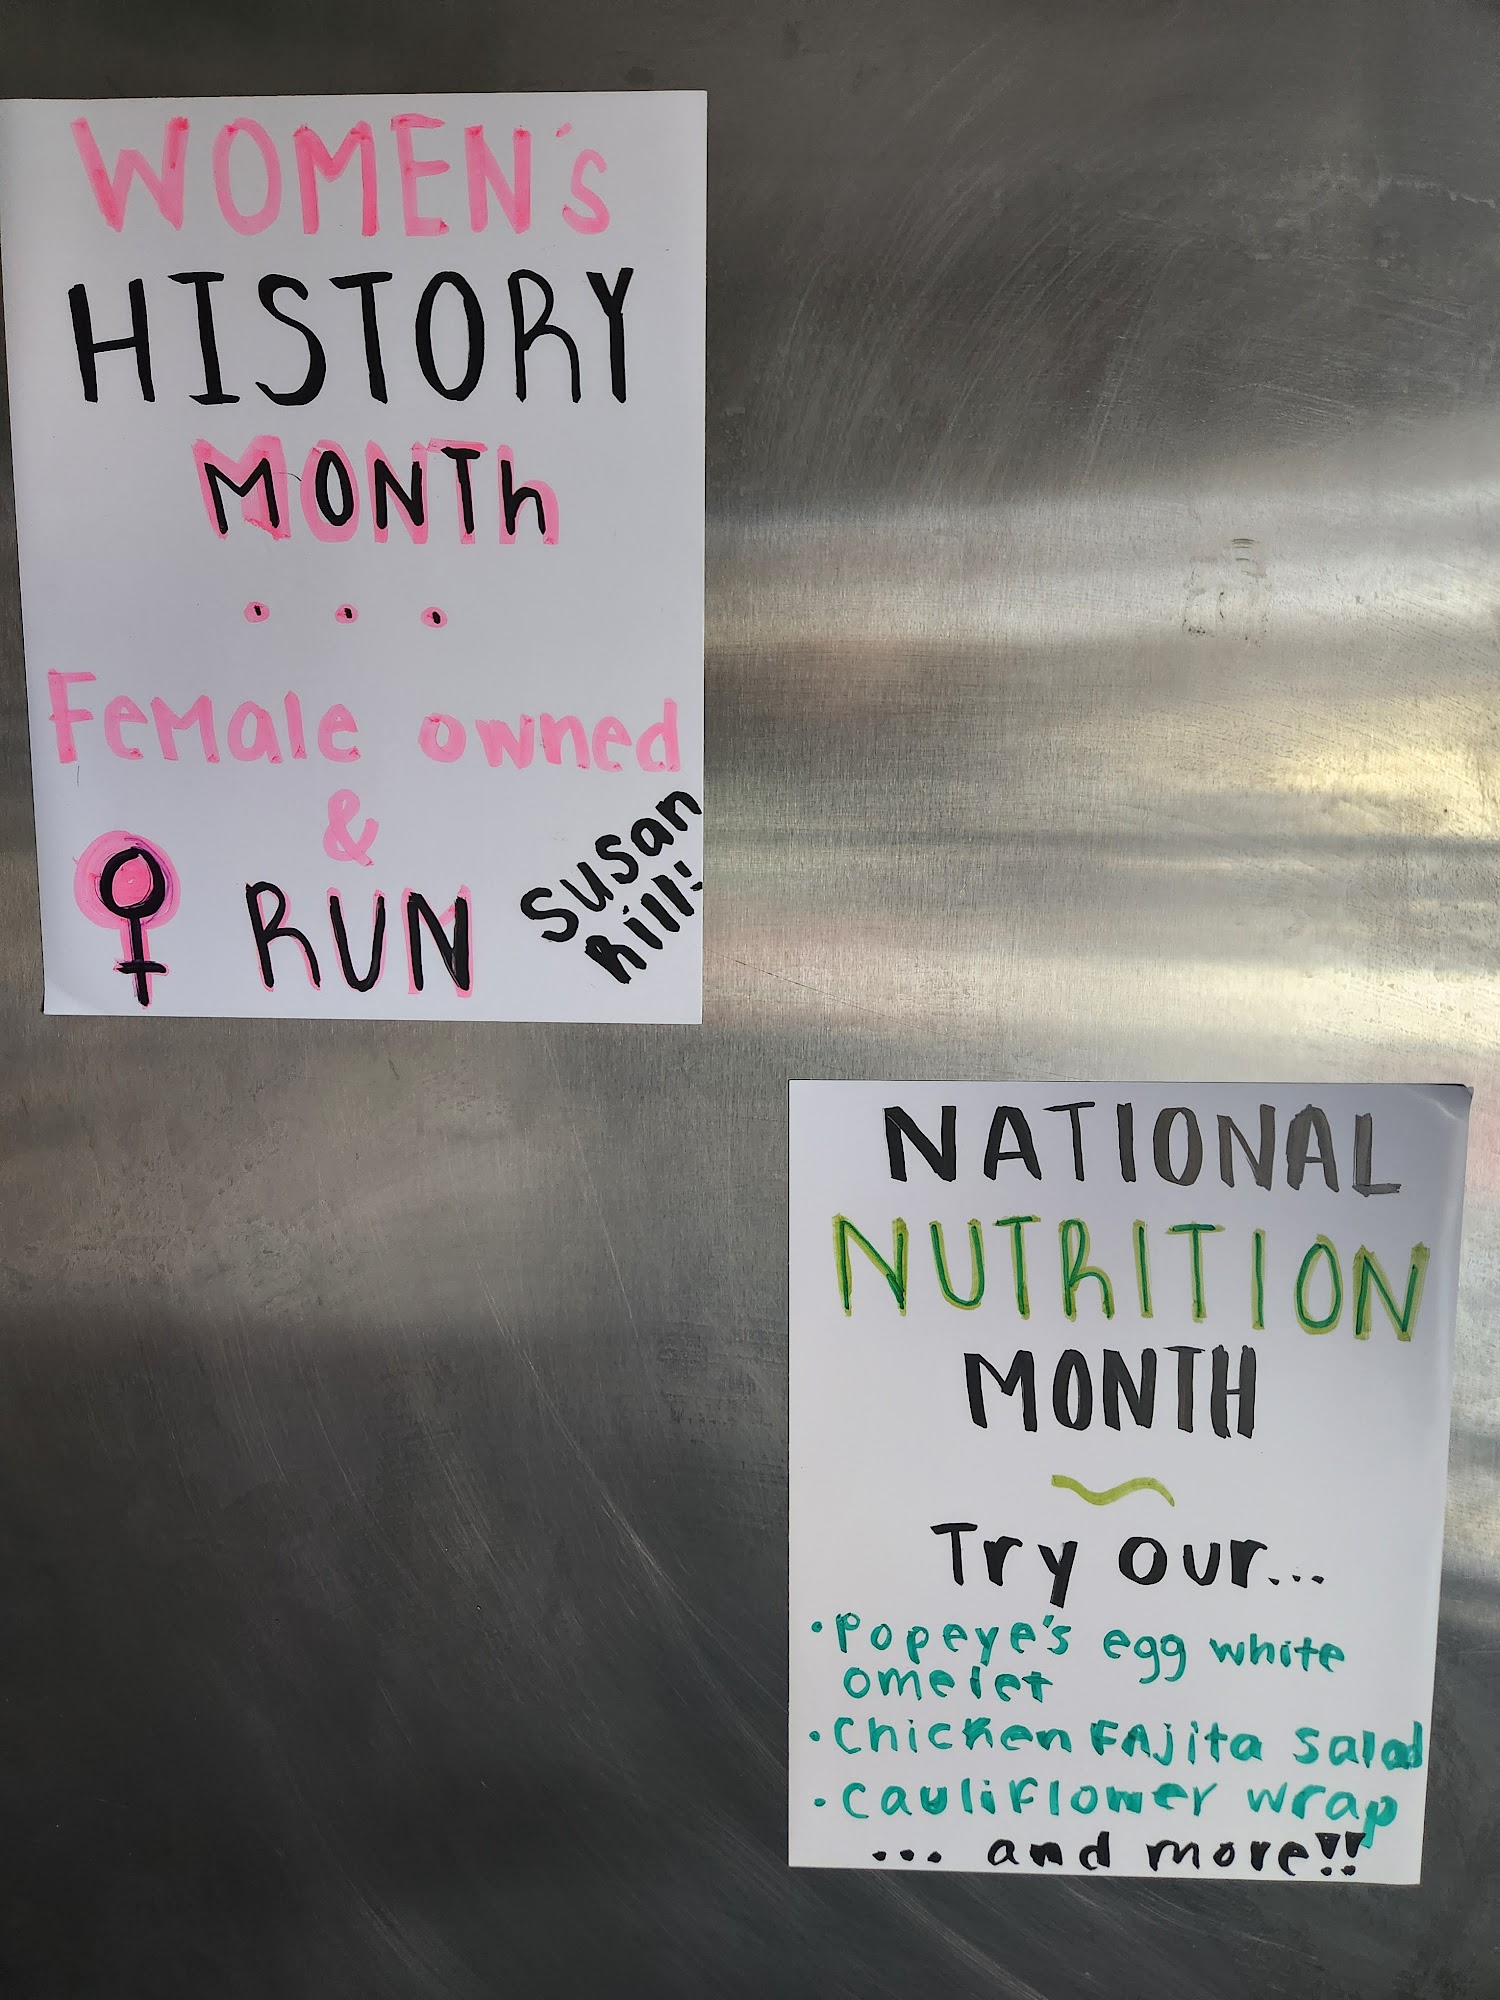 WOMEN's
HISTORY
MONTh
...
Female owned
&
RUN
Susan
Rill!
NATIONAL
NUTRITION
MONTH
~
Try our...
• Popeye's egg white
omelet
• Chicken FAjita salad
• cauliflower wrap
... and more!!